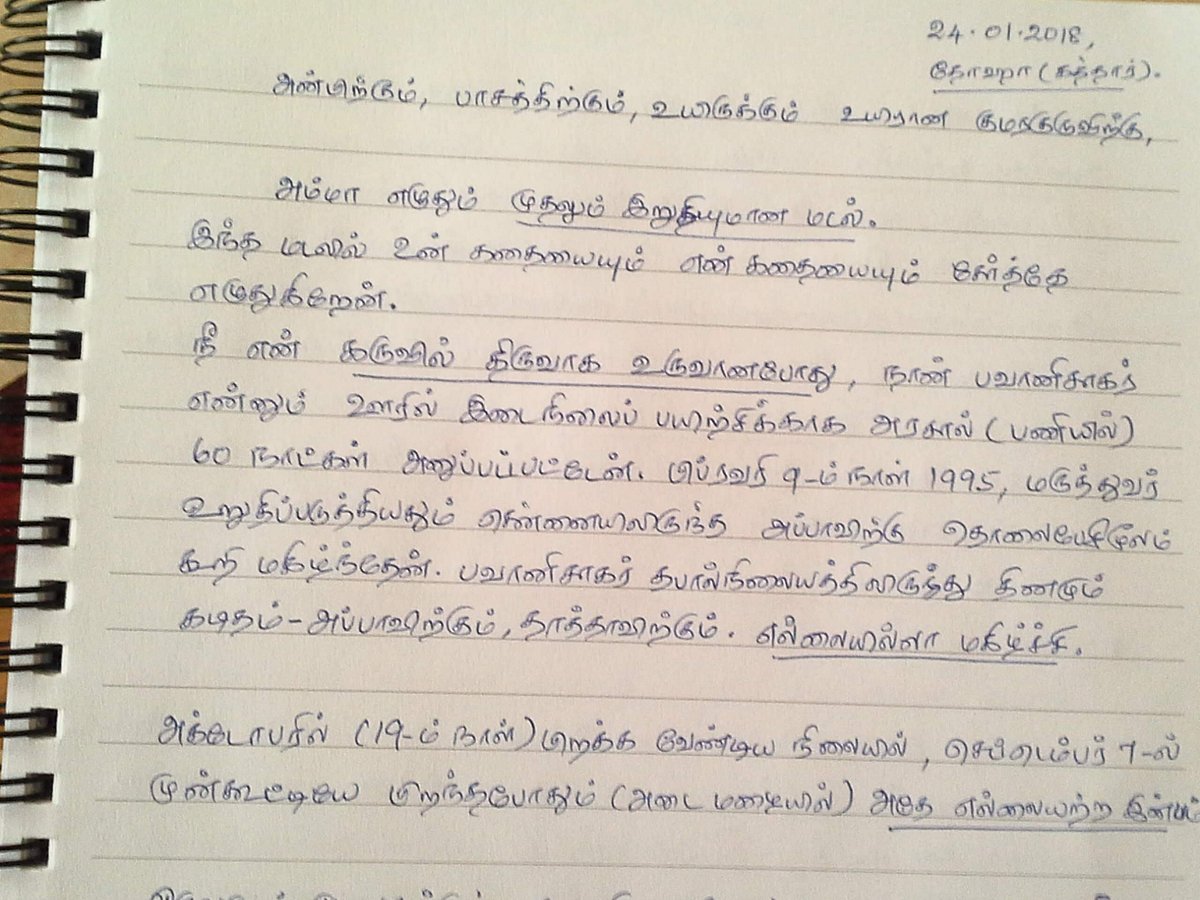 24.01.2018,
தோஹா (கத்தார்).
அன்பிற்கும், பாசத்திற்கும், உயிருக்கும் உயிரான குமரகுருவிற்கு,
அம்மா எழுதும் முதலும் இறுதியுமான மடல்.
இந்த மடலில் உன் கதையையும் என் கதையையும் சேர்த்தே
எழுதுகிறேன்.
நீ என் கருவில் திருவாக உருவானபோது, நான் பவானிசாகர்
என்னும் ஊரில் இடைநிலைப் பயிற்சிக்காக அரசால் (பணியில்)
60 நாட்கள் அனுப்பப்பட்டேன். பிப்ரவரி 9-ம் நாள் 1995, மருத்துவர்
உறுதிப்படுத்தியதும் சென்னையிலிருந்த அப்பாவிற்கு தொலைபேசிமூலம்
கூறி மகிழ்ந்தேன். பவானிசாகர் தபால்நிலையத்திலிருந்து தினமும்
கடிதம் - அப்பாவிற்கும், தாத்தாவிற்கும். எல்லையில்லா மகிழ்ச்சி.
அக்டோபரில் (19-ம் நாள்) பிறக்க வேண்டிய நிலையில், செப்டெம்பர் 7-ல்
முன்கூட்டியே பிறந்தபோதும் (அடை மழையில்) அதே எல்லையற்ற இன்பம்